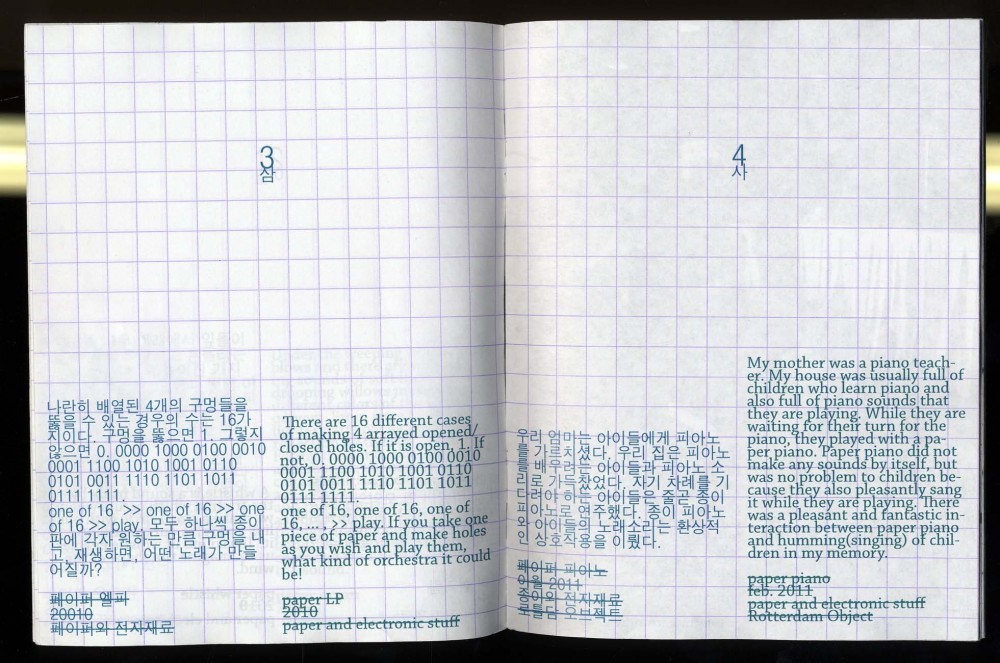 3
삼
나란히 배열된 4개의 구멍들을
뚫을 수 있는 경우의 수는 16가
지이다. 구멍을 뚫으면 1. 그렇지
않으면 0. 0000 1000 0100 0010
0001 1100 1010 1001 0110
0101 0011 1110 1101 1011
0111 1111.
one of 16 >> one of 16 >> one
of 16 >> play. 모두 하나씩 종이
판에 각자 원하는 만큼 구멍을 내
고, 재생하면, 어떤 노래가 만들
어질까?
페이퍼 엘피
20010
페이퍼와 전자재료
There are 16 different cases
of making 4 arrayed opened/
closed holes. If it is open, 1. If
not, 0. 0000 1000 0100 0010
0001 1100 1010 1001 0110
0101 0011 1110 1101 1011
0111 1111.
one of 16, one of 16, one of
16, ... , >> play. If you take one
piece of paper and make holes
as you wish and play them,
what kind of orchestra it could
be!
paper LP
2010
paper and electronic stuff
4
사
우리 엄마는 아이들에게 피아노
를 가르치셨다. 우리 집은 피아노
를 배우려는 아이들과 피아노 소
리로 가득찼었다. 자기 차례를 기
다려야 하는 아이들은 줄곧 종이
피아노로 연주했다. 종이 피아노
와 아이들의 노래소리는 환상적
인 상호작용을 이뤘다.
페이퍼 피아노
이월 2011
종이와 전자재료
로틀담 오브젝트
My mother was a piano teach-
er. My house was usually full of
children who learn piano and
also full of piano sounds that
they are playing. While they are
waiting for their turn for the
piano, they played with a pa-
per piano. Paper piano did not
make any sounds by itself, but
was no problem to children be-
cause they also pleasantly sang
it while they are playing. There
was a pleasant and fantastic in-
teraction between paper piano
and humming(singing) of chil-
dren in my memory.
paper piano
feb. 2011
paper and electronic stuff
Rotterdam Object